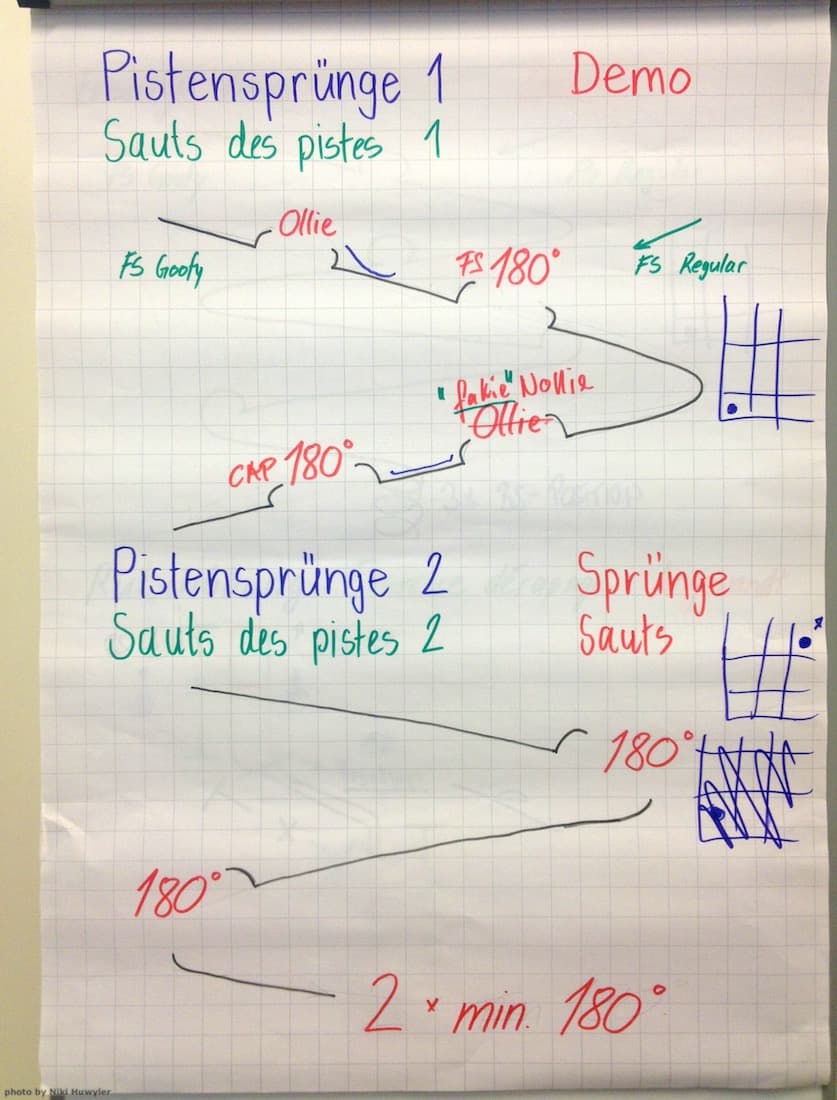 Pistensprünge 1
Demo
Sauts des pistes 1
Ollie
FS Goofy
FS 180°
FS Regular
"fakie" Nollie
Ollie
CAP 180°
Pistensprünge 2
Sprünge
Sauts des pistes 2
Sauts
180°
180°
2 x min. 180°
photo by Niki Huwyler